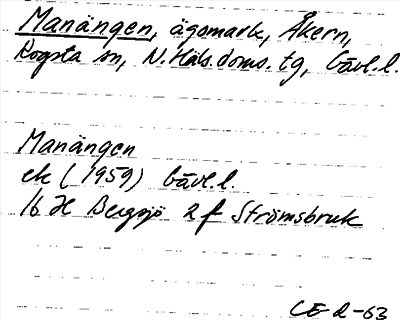 Manängen, ägomark, Åkern,
Rogsta sn, N. Häls. doms. tg, Gävl. l.
Manängen
ek (1959) Gävl. l.
16 H Bergsjö 2 f Strömsbruk
CE-d-63